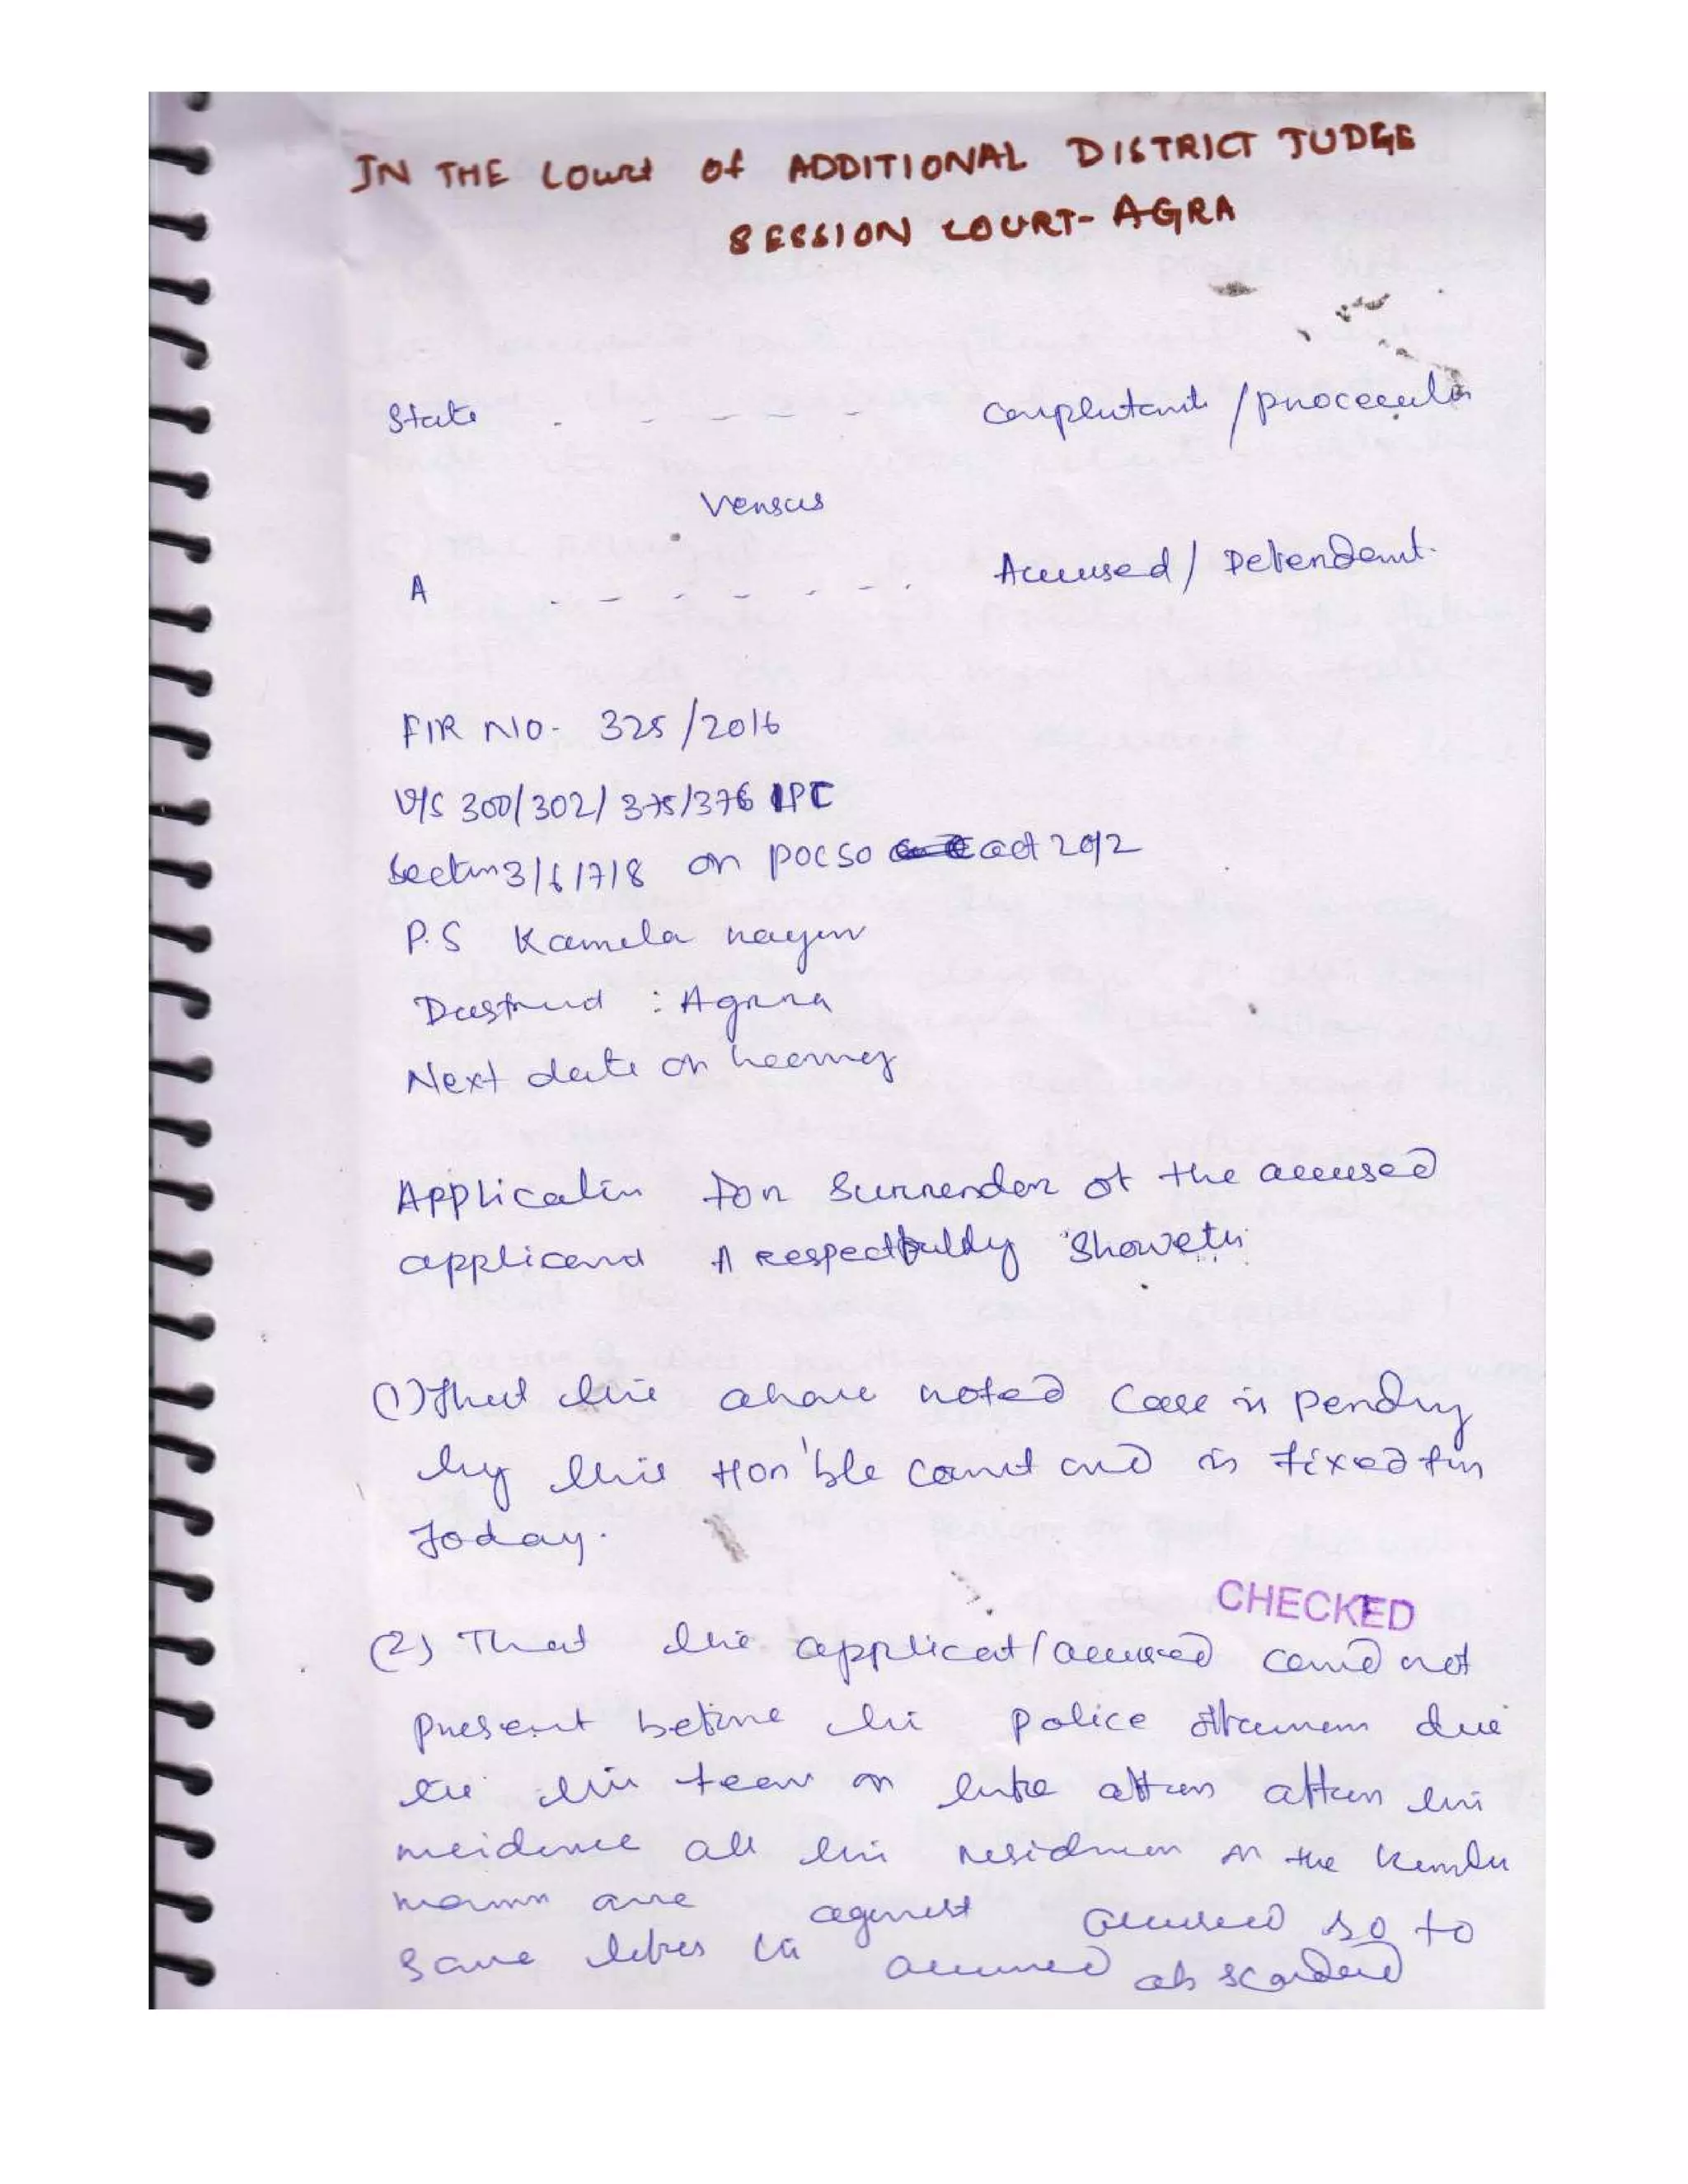 IN THE COURT Of ADDITIONAL DISTRICT JUDGE
SESSION COURT- AGRA
State - - - - - /
Versus
A - - - - - - - Accused / Defendant.
FIR NO- 325/2016
U/S 300/302/375/376 IPC
Section 3/6/7/8 of POCSO act 2012
P.S Kamla nagar
District : Agra
Next date of hearing
Application for Surrender of the accused
applicant A Respectfully Showeth
(1) That the above noted Case is pending
by this Hon'ble Court and is fixed for
Today.
CHECKED
(2) That the applicant/accused could not
Present before the Police due
to the fear of after the
incidence all the of the Kamla
are against accused so to
Save the accused absconded